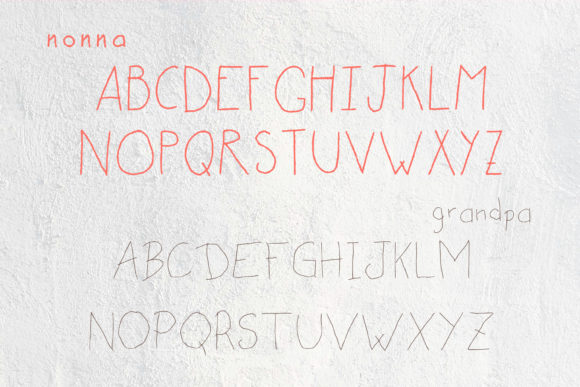 nonna
ABCDEFGHIJKLM
NOPQRSTUVWXYZ
grandpa
ABCDEFGHIJKLM
NOPQRSTUVWXYZ